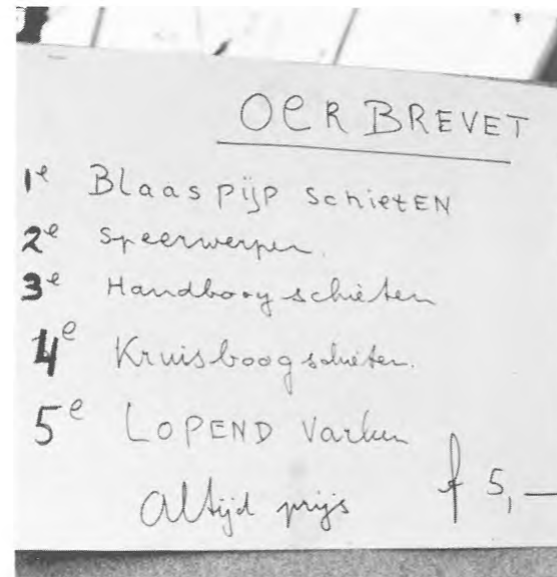 OERBREVET
1e Blaaspijp schieten
2e Speerwerpen.
3e Handboogschieten
4e Kruisboogschieten.
5e LOPEND Varken
Altijd prijs f 5,—